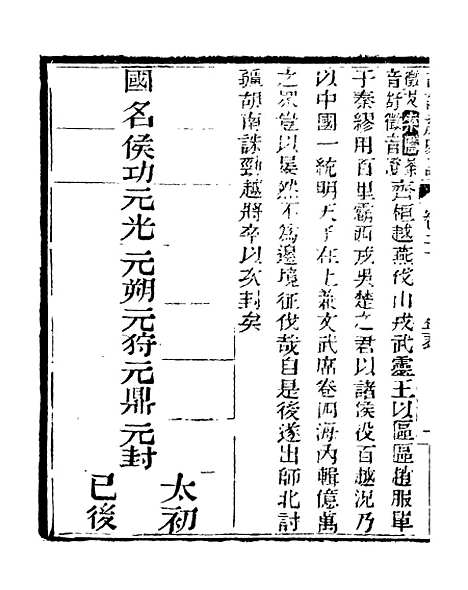 索隱荼
音舒徵音證
齊桓越燕伐山戎武靈王以區區趙服單
于秦繆用百里霸西戎吳楚之君以諸侯役百越況乃
以中國一統明天子在上兼文武席卷四海內輯億萬
之眾豈以晏然不為邊境征伐哉自是後遂出師北討
彊胡南誅勁越將卒以次封矣
國名侯功元光元朔元狩元鼎元封
太初
已後